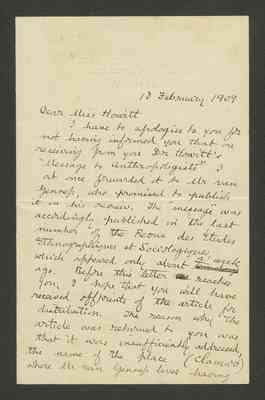 18 February 1909
Dear Miss Howitt
I have to apologise to you for
not having informed you that on
receiving from you Dr Howitt's
"Message to Anthropologists" I
at once forwarded it to Mr van
Gennep, who promised to publish
it in his review. The "message" was
accordingly published in the last
number of the Revue des Études
Ethnographiques et Sociologiques
which appeared only about a week
ago. Before this letter reaches
you, I hope that you will have
received offprints of the article for
distribution. The reason why the
article was returned to you was
that it was insufficiently addressed,
the name of the place (Clamart)
where Mr van Gennep lives having